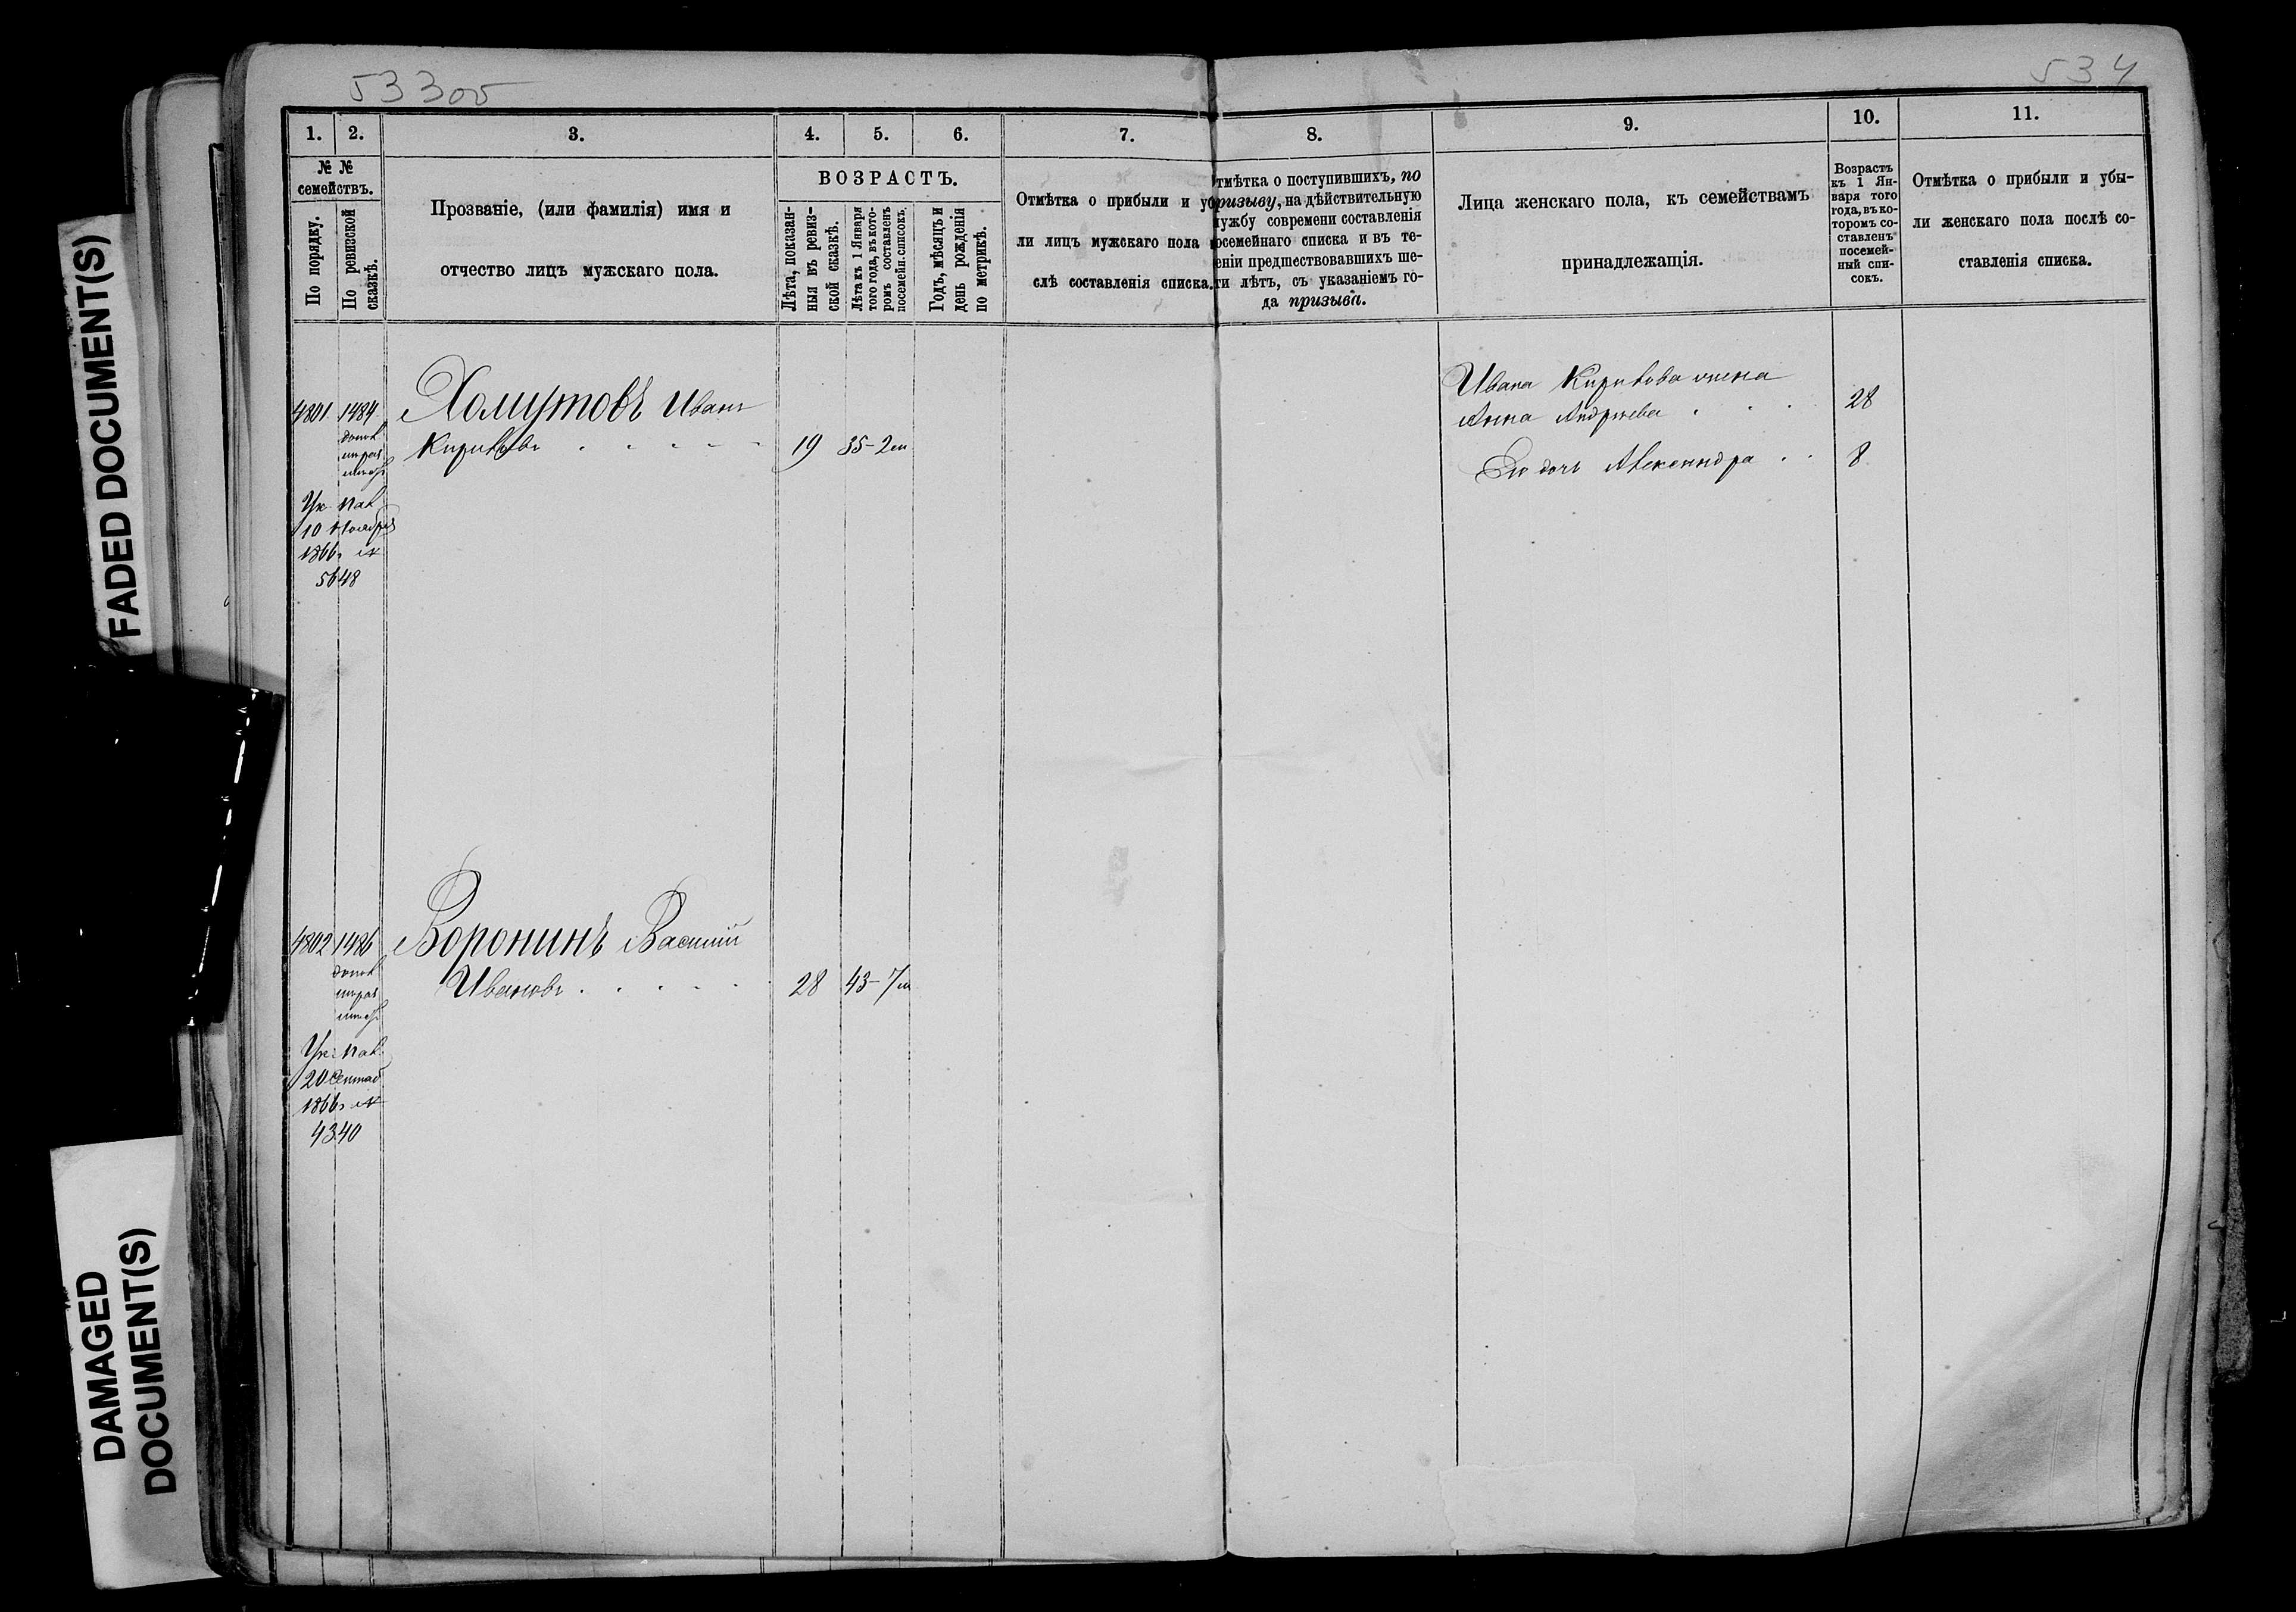 533об
534
FADED DOCUMENT(S)
DAMAGED
DOCUMENT(S)
1.
2.
3.
4.
5.
6.
7.
8.
9.
10.
11.
№ №
семействъ.
По порядку.
По ревизской
сказкѣ.
Прозваніе, (или фамилія) имя и
отчество лицъ мужскаго пола.
ВОЗРАСТЪ.
Лѣта, показан-
ныя въ ревиз-
ской сказкѣ.
Лѣта къ 1 Января
того года, въ кото-
ромъ составленъ
посемейн. списокъ.
Годъ, мѣсяцъ и
день рожденія
по метрикѣ.
Отмѣтка о прибыли и уб
ли лицъ мужскаго пола
слѣ составленія списка.
тмѣтка о поступившихъ, по
ризыву, на дѣйствительную
ужбу современи составленія
осемейнаго списка и въ те-
еніи предшествовавшихъ ше-
ти лѣтъ, съ указаніемъ го-
да призыва.
Лица женскаго пола, къ семействамъ
принадлежащія.
Возрастъ
къ 1 Ян-
варя того
года, въ ко-
торомъ со-
ставленъ
посемей-
ный спи-
сокъ.
Отмѣтка о прибыли и убы-
ли женскаго пола послѣ со-
ставленія списка.
4801 1484 Хомутовъ Иванъ
Кириловъ 19 35-2м
Ук. Пал.
10 Ноября
1866г №
5648
Ивана Кирилова жена
Анна Андреева 28
Ея дочь Александра 8
4802 1486 Воронинъ Василий
Ивановъ 28 43-7м
Ук. Пал.
20 Сентяб
1866г №
4340